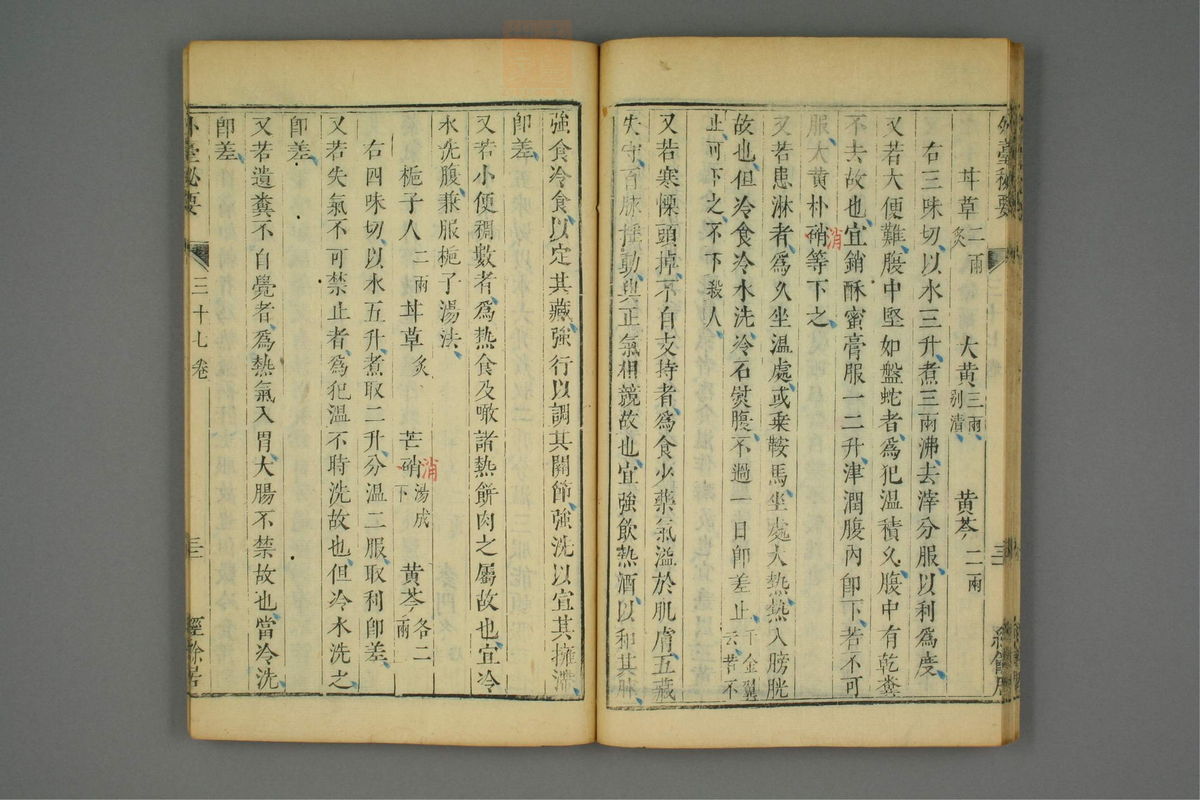 外臺秘要
三
經餘居
甘草二兩炙 大黄三兩剉漬 黄芩二兩
右三味切以水三升煮三兩沸去滓分服以利爲度
又若大便難腹中堅如盤蛇者爲犯温積久腹中有乾糞
不去故也宜銷酥蜜膏服一二升津潤腹内卽下若不可
服大黄朴硝等下之
消
又若患淋者爲久坐温處或乗鞍馬坐處大熱熱入膀胱
故也但冷食冷水洗冷石熨腹不過一日卽差止千金翼云若不
止可下之不下殺人
又若寒慄頭掉不自支持者爲食少藥氣溢於肌膚五藏
失守百脉摇動與正氣相競故也宜強飲熱酒以和其脉
強食冷食以定其藏強行以調其關節強洗以宜其擁滯
卽差
又若小便稠數者爲熱食及噉諸熱餅肉之屬故也宜冷
水洗腹兼服梔子湯法
梔子人二兩 甘草炙 芒硝湯成下 黄芩各二兩
消
右四味切以水五升煮取二升分温二服取利卽差
又若失氣不可禁止者爲犯温不時洗故也但冷水洗之
卽差
又若遺糞不自覺者爲熱氣入胃大腸不禁故也當冷洗
卽差
外臺秘要
三十七卷
三
經餘居